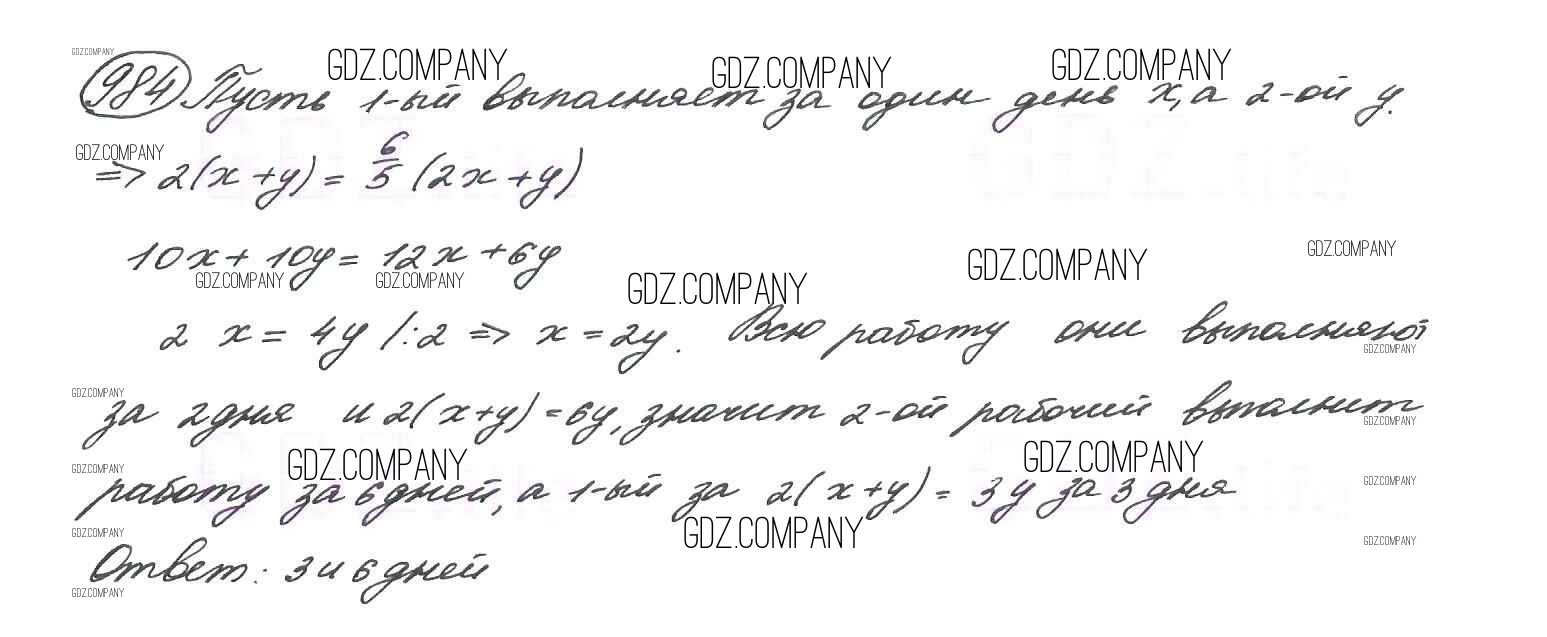 GDZ.COMPANY
GDZ.COMPANY GDZ.COMPANY GDZ.COMPANY
984 Пусть 1-ый выполняет за один день x, а 2-ой y.
GDZ.COMPANY
=> 2(x+y) = 6/5 (2x+y)
10x + 10y = 12x + 6y
GDZ.COMPANY GDZ.COMPANY GDZ.COMPANY GDZ.COMPANY GDZ.COMPANY
2 x = 4y /:2 => x = 2y. Всю работу они выполняют
GDZ.COMPANY
GDZ.COMPANY
за 2 дня и 2(x+y) = 6y, значит 2-ой рабочий выполнит
GDZ.COMPANY
GDZ.COMPANY GDZ.COMPANY GDZ.COMPANY
работу за 6 дней, а 1-ый за 2(x+y) = 3y за 3 дня
GDZ.COMPANY
GDZ.COMPANY GDZ.COMPANY GDZ.COMPANY
Ответ: 3 и 6 дней
GDZ.COMPANY